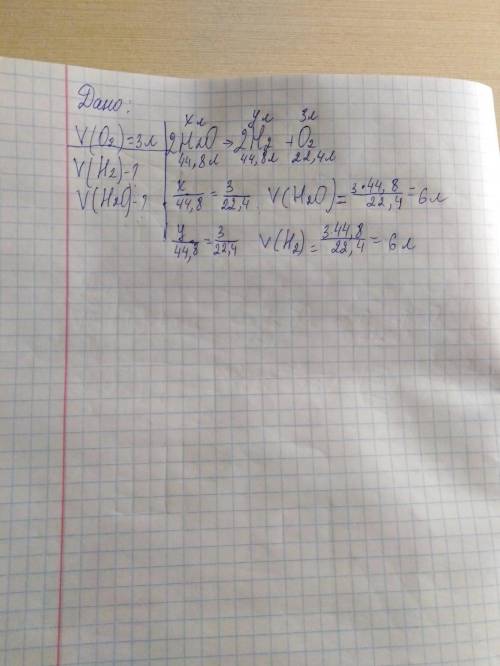 Дано:
V(O₂)=3л
V(H₂)-?
V(H₂O)-?
xл yл 3л
2H₂O → 2H₂ + O₂
44,8л 44,8л 22,4л
x/44,8 = 3/22,4 V(H₂O) = 3•44,8/22,4 = 6л
y/44,8 = 3/22,4 V(H₂) = 3 44,8/22,4 = 6л